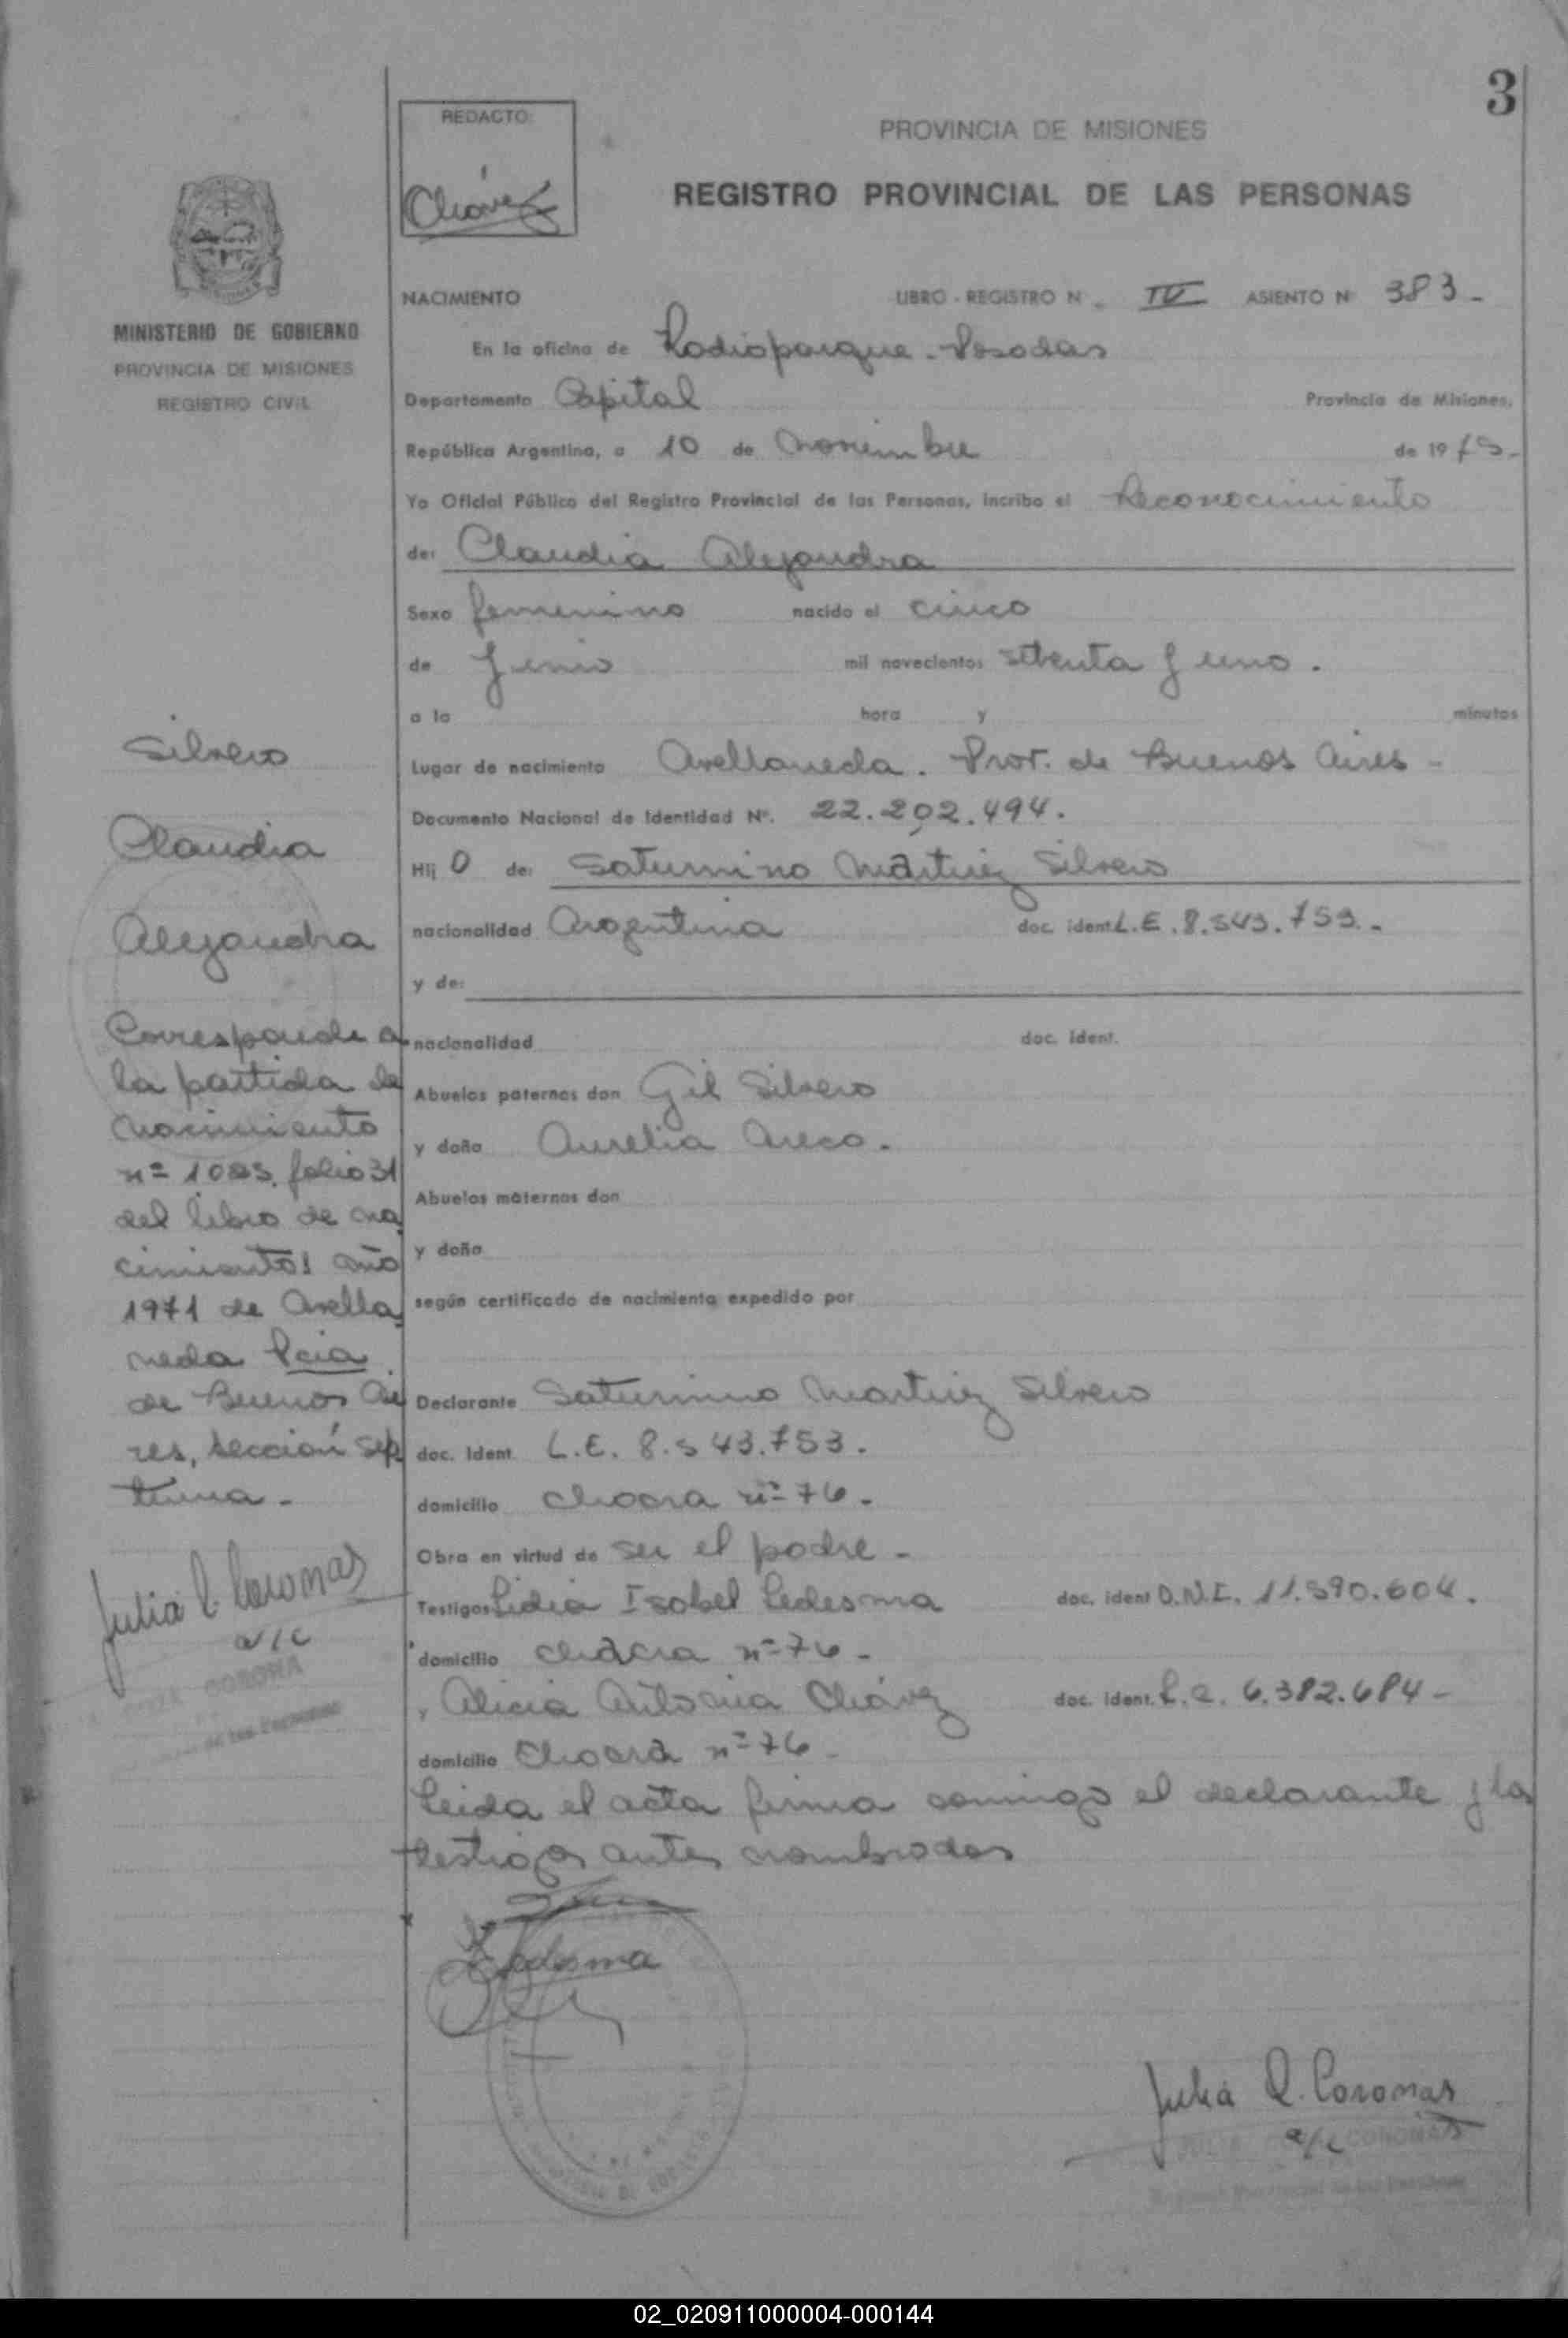 3
REDACTO:
Chávez
PROVINCIA DE MISIONES
REGISTRO PROVINCIAL DE LAS PERSONAS
MINISTERIO DE GOBIERNO
PROVINCIA DE MISIONES
REGISTRO CIVIL
NACIMIENTO LIBRO - REGISTRO N IV ASIENTO N 383 -
En la oficina de Radioparque - Posadas
Departamento Capital Provincia de Misiones,
República Argentina, a 10 de noviembre de 19
Yo Oficial Público del Registro Provincial de las Personas, incribo el Reconocimiento
de: Claudia Alejandra
Sexo femenino nacido el cinco
de Junio mil novecientos setenta y uno.
a la hora y minutos
Lugar de nacimiento Avellaneda. Prov. de Buenos Aires -
Documento Nacional de Identidad Nº. 22.202.494.
Hij o de: Saturnino Martinez Silvero
nacionalidad Argentina doc. ident. L.E. 8.543.753. -
y de:
nacionalidad doc. ident.
Abuelos paternos don Gil Silvero
y doña Aurelia Areco.
Abuelos maternos don
y doña
según certificado de nacimiento expedido por
Declarante Saturnino Martinez Silvero
doc. Ident. L.E. 8.543.753.
domicilio chacra nº 76.
Obra en virtud de ser el padre -
Testigos Lidia Isabel Ledesma doc. ident D.N.I. 11.590.604.
domicilio chacra nº 76 -
y Alicia Antonia Chávez doc. ident. L.C. 6.382.684 -
domicilio Chacra nº 76 -
Leida el acta firma conmigo el declarante y los
testigos antes nombrados
Ledesma
Julia Q. Coronas
a/c
JULIA CORONAS
Silvero
Claudia
Alejandra
Corresponde a
la partida de
nacimiento
nº 1083, folio 31
del libro de na
cimientos año
1971 de Avella
neda Pcia
de Buenos Ai
res, Sección sép
tima -
Julia Q. Coronas
a/c
CORONA
de las Personas
02_020911000004-000144